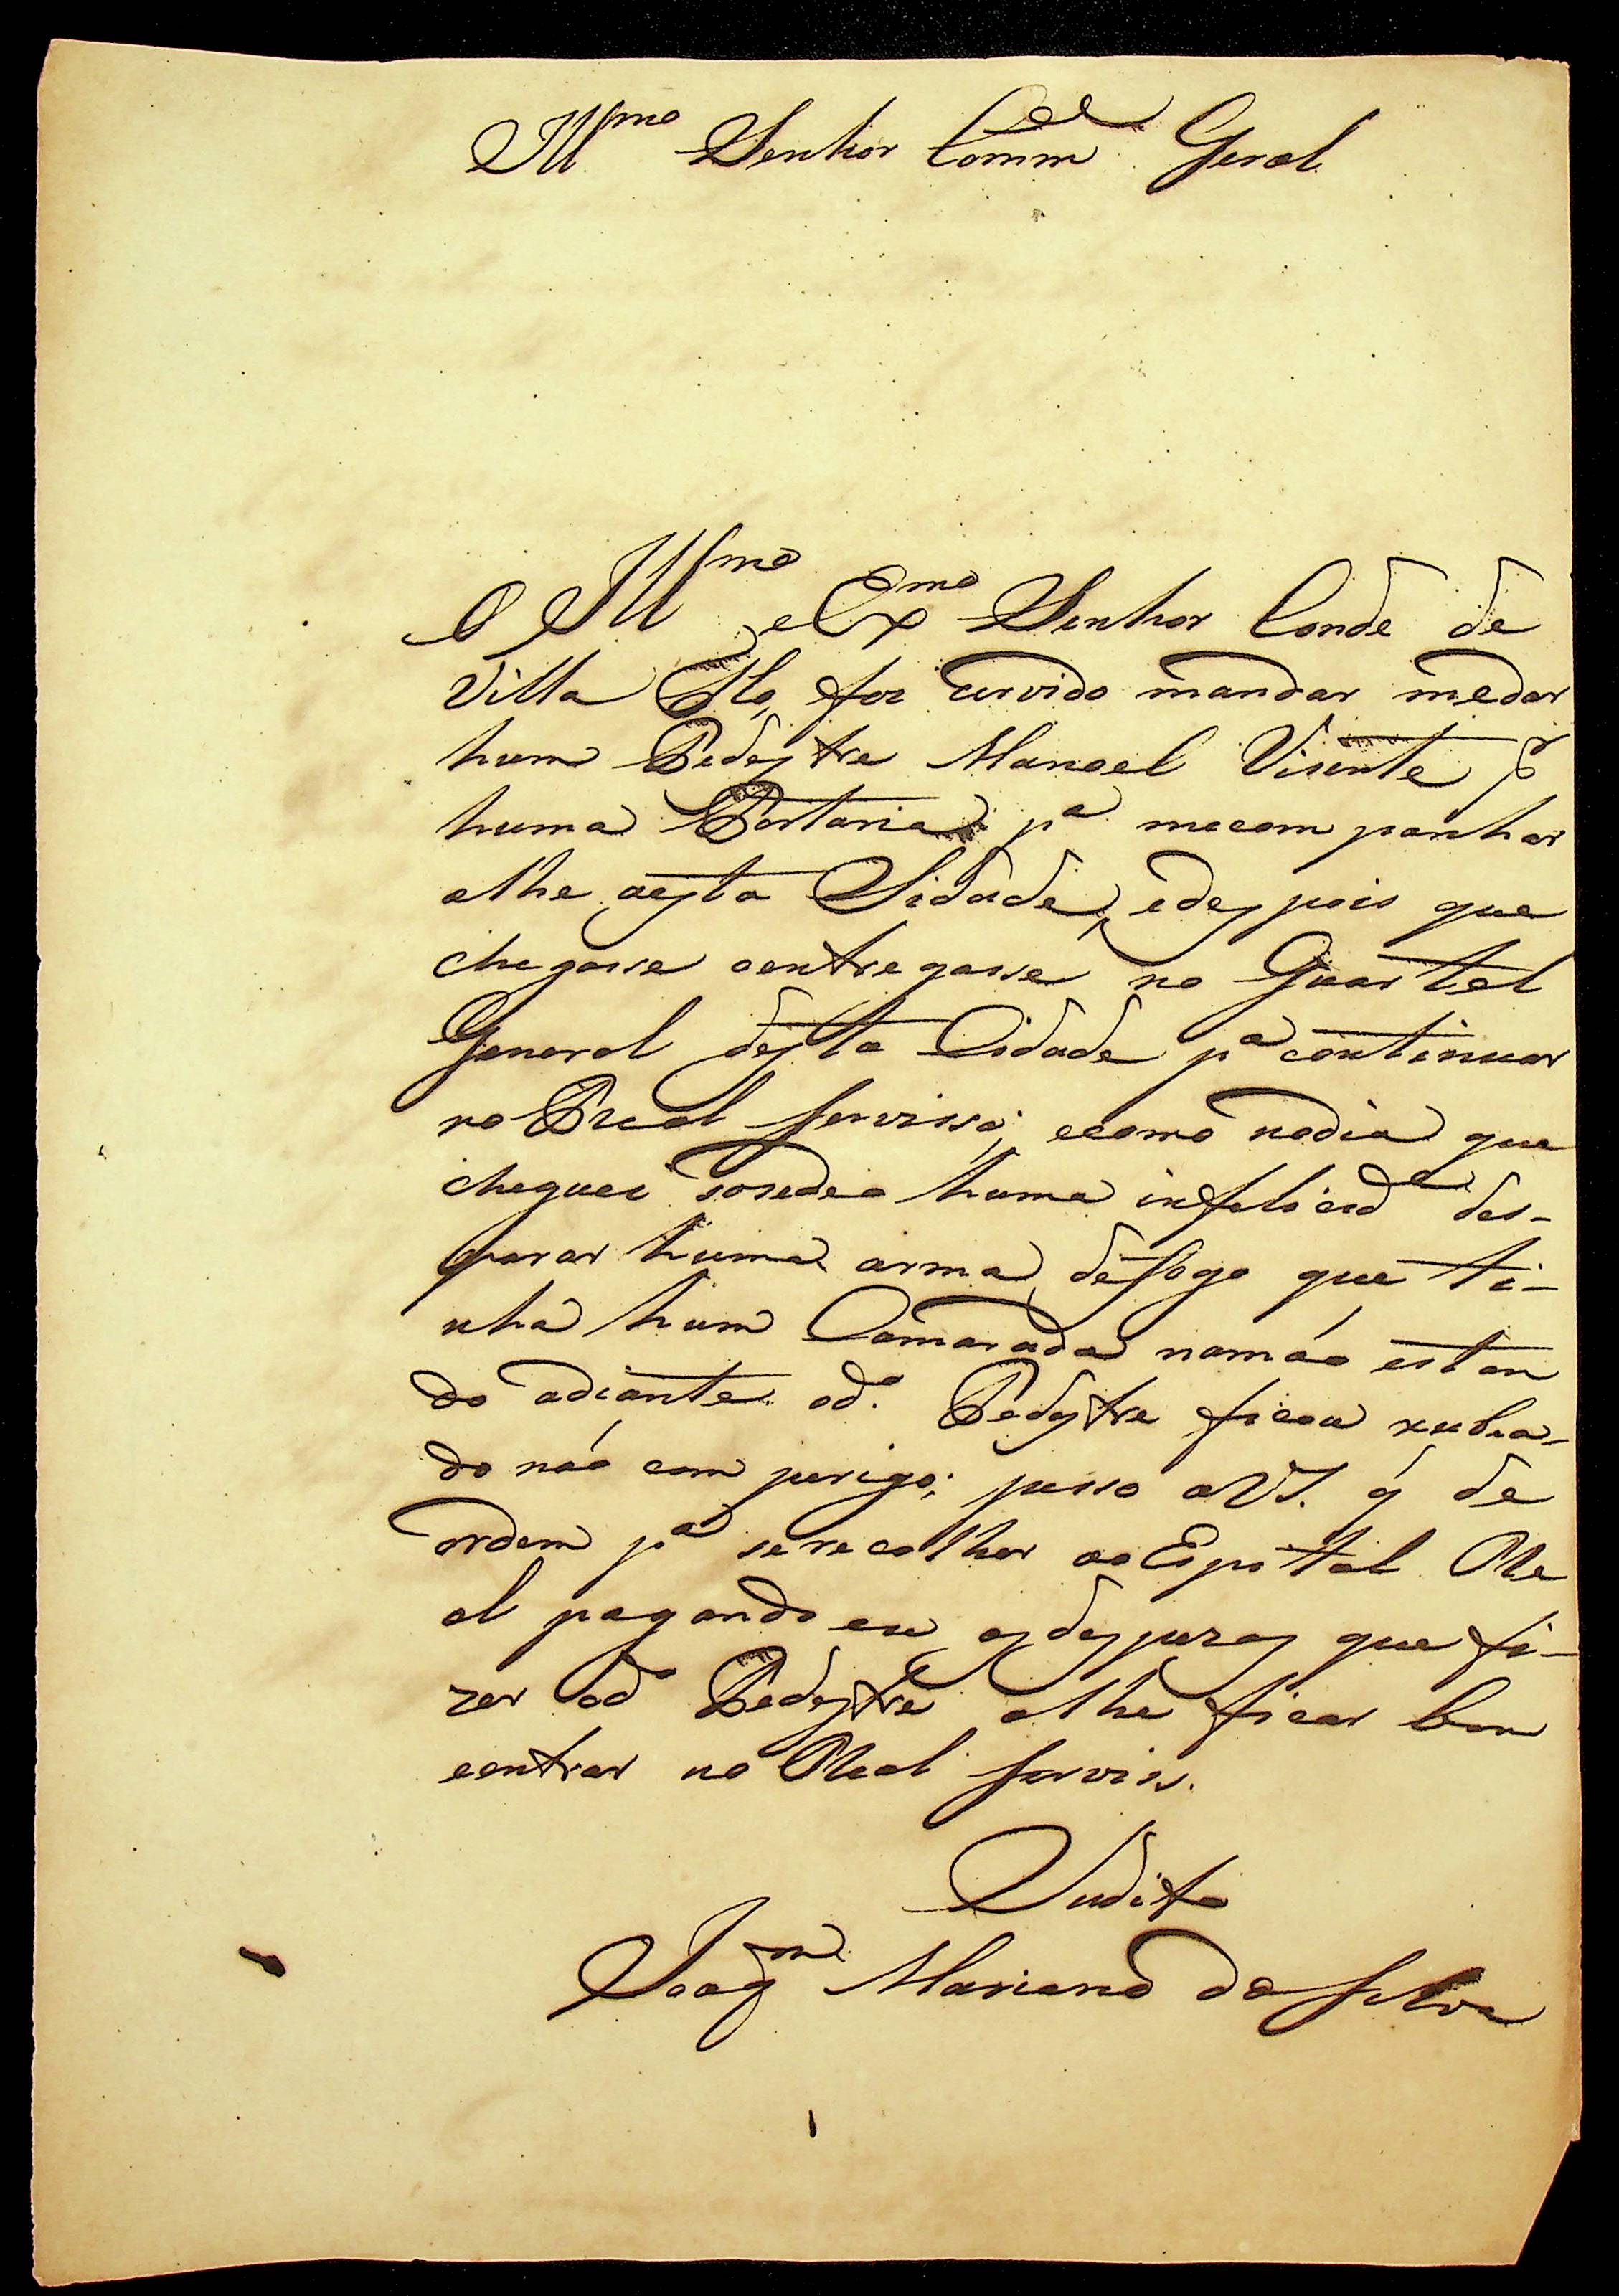 Illmo Senhor Comm.el Geral
O Illmo e Exmo Senhor Conde de
Villa Flo, foi cervido mandar medar
hum Pedestre Manoel Visente p.r
huma Portaria p.a mecompanhar
athe aesta Sidade, edespois que
chegasse oentregasse no Quartel
General desta Cidade p.a continuar
no Real servisso; ecomo nodia que
cheguei sosedeo huma infelicid.e des-
parar huma arma defogo que ti-
nha hum Camarada namáo estan
do adiante od.o Pedestre ficou xubia-
do náo com perigo; pesso aVS. q́ de
ordem p.a serecolher ao Espital Re
al pagando eu asdespezas que fi-
zer od.o Pedestre athe ficar bom
eentrar no Real servis.
Sudito
Joaq.m Mariano da Silva